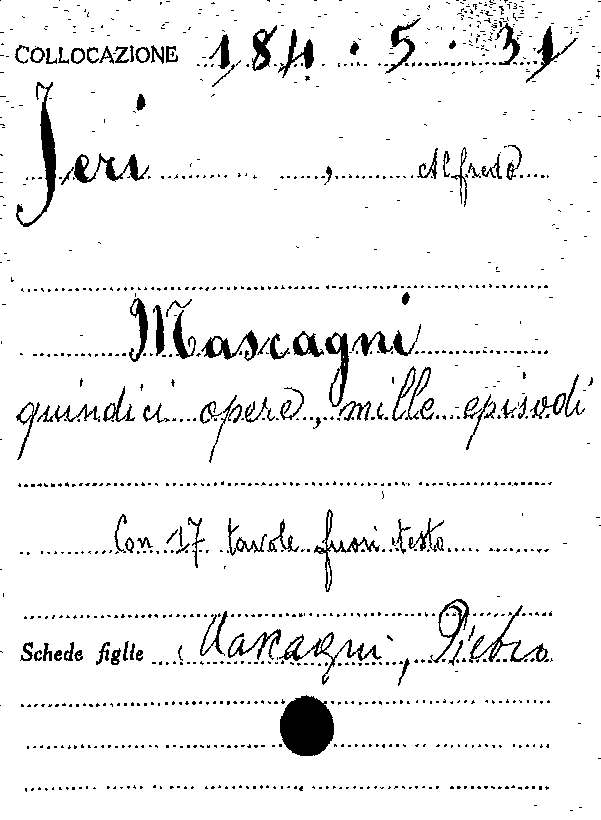 COLLOCAZIONE 184.5.31
Jeri, Alfredo
Mascagni
quindici opere, mille episodi
Con 17 tavole fuori testo
Schede figlie Mascagni, Pietro